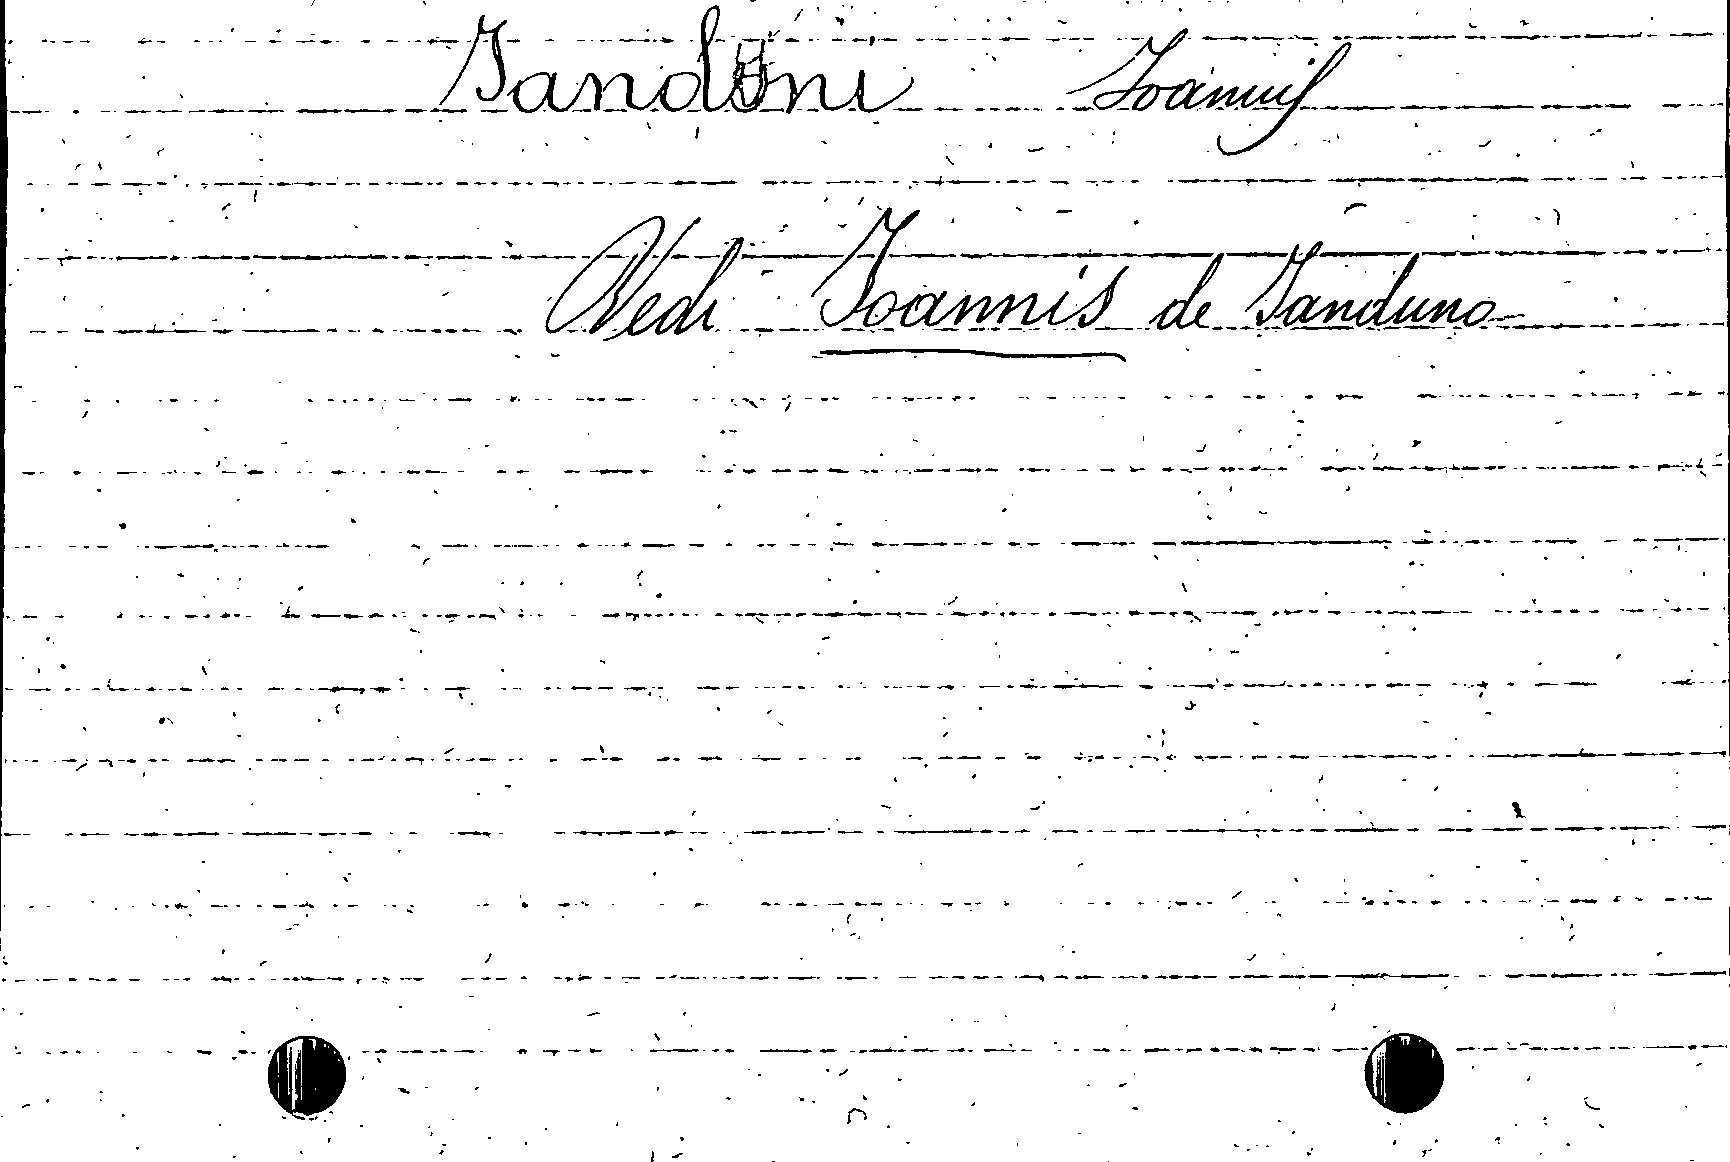 Janduni Joannis
Vedi Joannis de Janduno